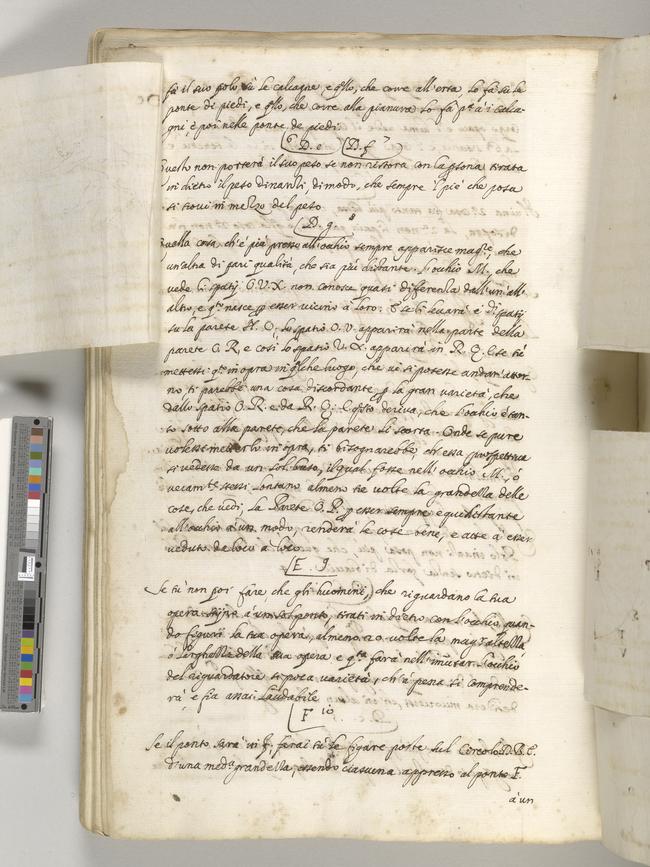 fà il suo polo sù le calcagne, e qllo, che corre all'erta lo fà sù la
ponte di piedi, e qllo, che corre alla pianura lo fa pª à i calca-
gni, e poi nelle ponte de piedi
6 D. e (D. f 7
Questo non porterà il suo peso se non ristora con la tirata
in dietro il peso dinanzi, di modo, che sempre il piè che posa
si trovi in mezzo del peso
D. g. 8
Quella cosa, ch'è più presso all'occhio sempre apparisce magre, che
un'altra di pari qualità, che sia più distante. L'occhio M., che
vede li spatij O.V.X. non conosce quasi differenza dall'un' all'
altro, e qto nasce p esser vicino à loro: è li spatij
su la parete O; lo spatio O.V. apparirà nella parte della
parete O.R, e così lo spatio V.X. apparirà in R.Q. E se tù
mettessi qto in opra in qlche luogo, che vi si potesse andar' attor-
no ti parebbe una cosa discordante p la gran varietà, che
dallo spatio O.R. e da R.Q: E qsto deriva, che l'occhio è tan-
to sotto alla parete, che la parete li scorta. Onde se pure
volessi metterlo in opra, ti bisognarebbe, ch'essa prospettiva
si vedesse da un sol buso, il qual fosse nell' occhio M., ò
veramte stessi lontano almeno tre volte la grandezza delle
cose, che vedi, la Parete O.P. p esser sempre equidistante
all'occhio à un modo, renderà le cose bene, e atte à esser
vedute da loco à loco
E. 9
Se tù non poi fare che gli huomini, che riguardano la tua
opera stijno à un sol ponto, tirati in dietro con l'occhio quan-
do figuri la tua opera, almeno 20 volte la magr altezza
ò larghezza della tua opera e qsta farà nell' mutar l'occhio
del riguardatore sì poca varietà, ch'à pena si comprende-
rà, e fia assai laudabile
F 10
Se il ponto sarà in F. farai tù le figure poste sul Cercolo D.B.E.
d'una medª grandezza, essendo ciascuna appresso al ponto F.
à un